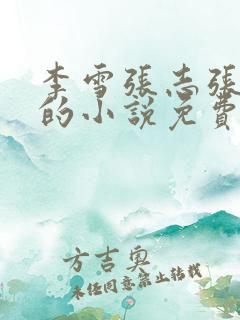 李雪張志張
的小說免費
方吉奧
未经同意禁止转载